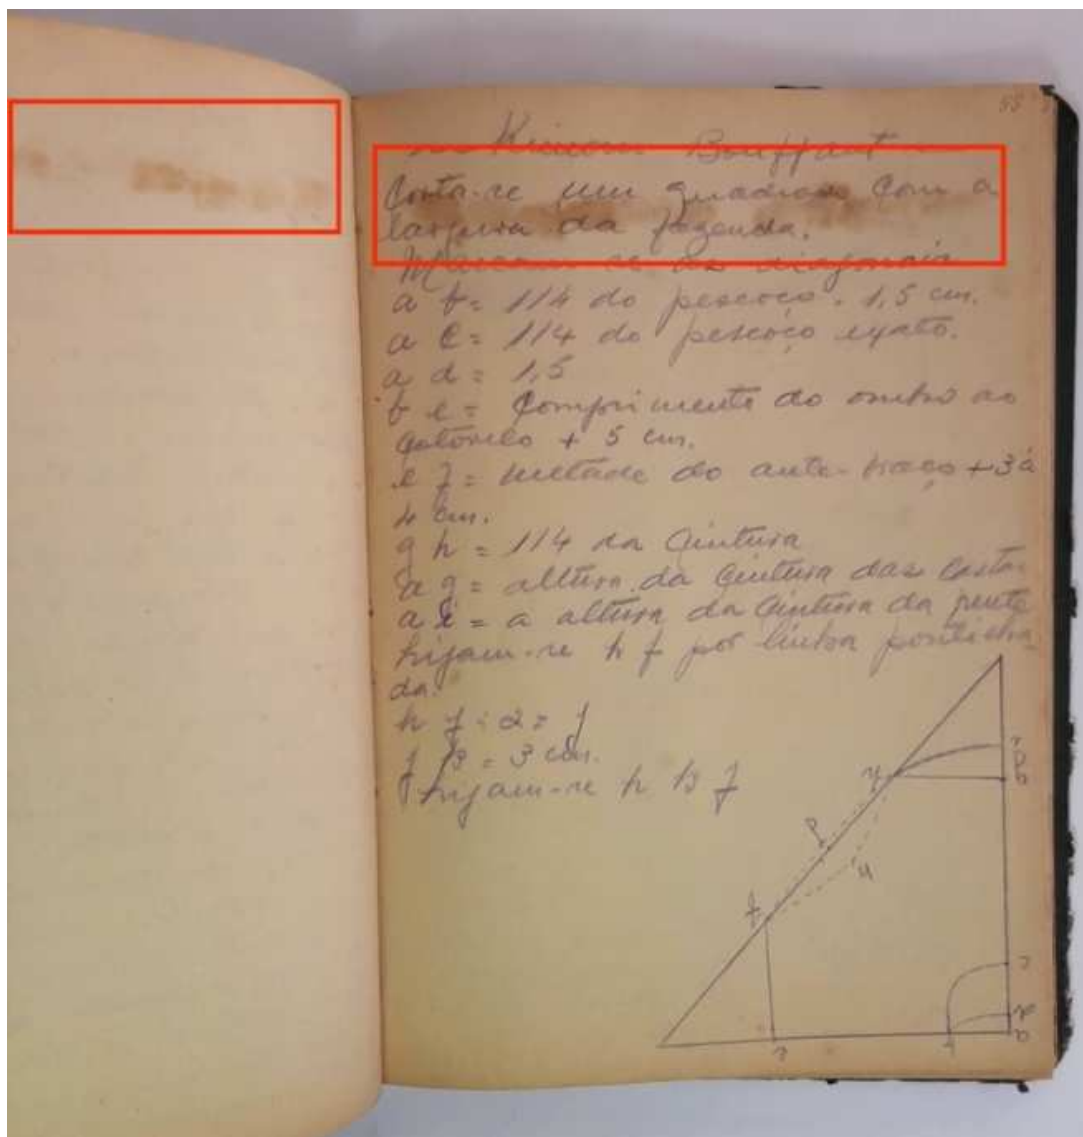 55
Kimono Bouffant
Corta-se um quadrado com a
largura da fazenda.
Marcam-se as diagonais
a b = 1/4 do pescoço. 1,5 cm.
a c = 1/4 do pescoço exato.
a d = 1,5
b e = Comprimento do ombro ao
cotovelo + 5 cm.
e f = metade do ante-braço + 3 à
4 cm.
g h = 1/4 da Cintura
a g = altura da Cintura das costa
a i = a altura da Cintura da frente
h f por linha pontilha
da.
h f : 2 = j
= 3 cm.
h f